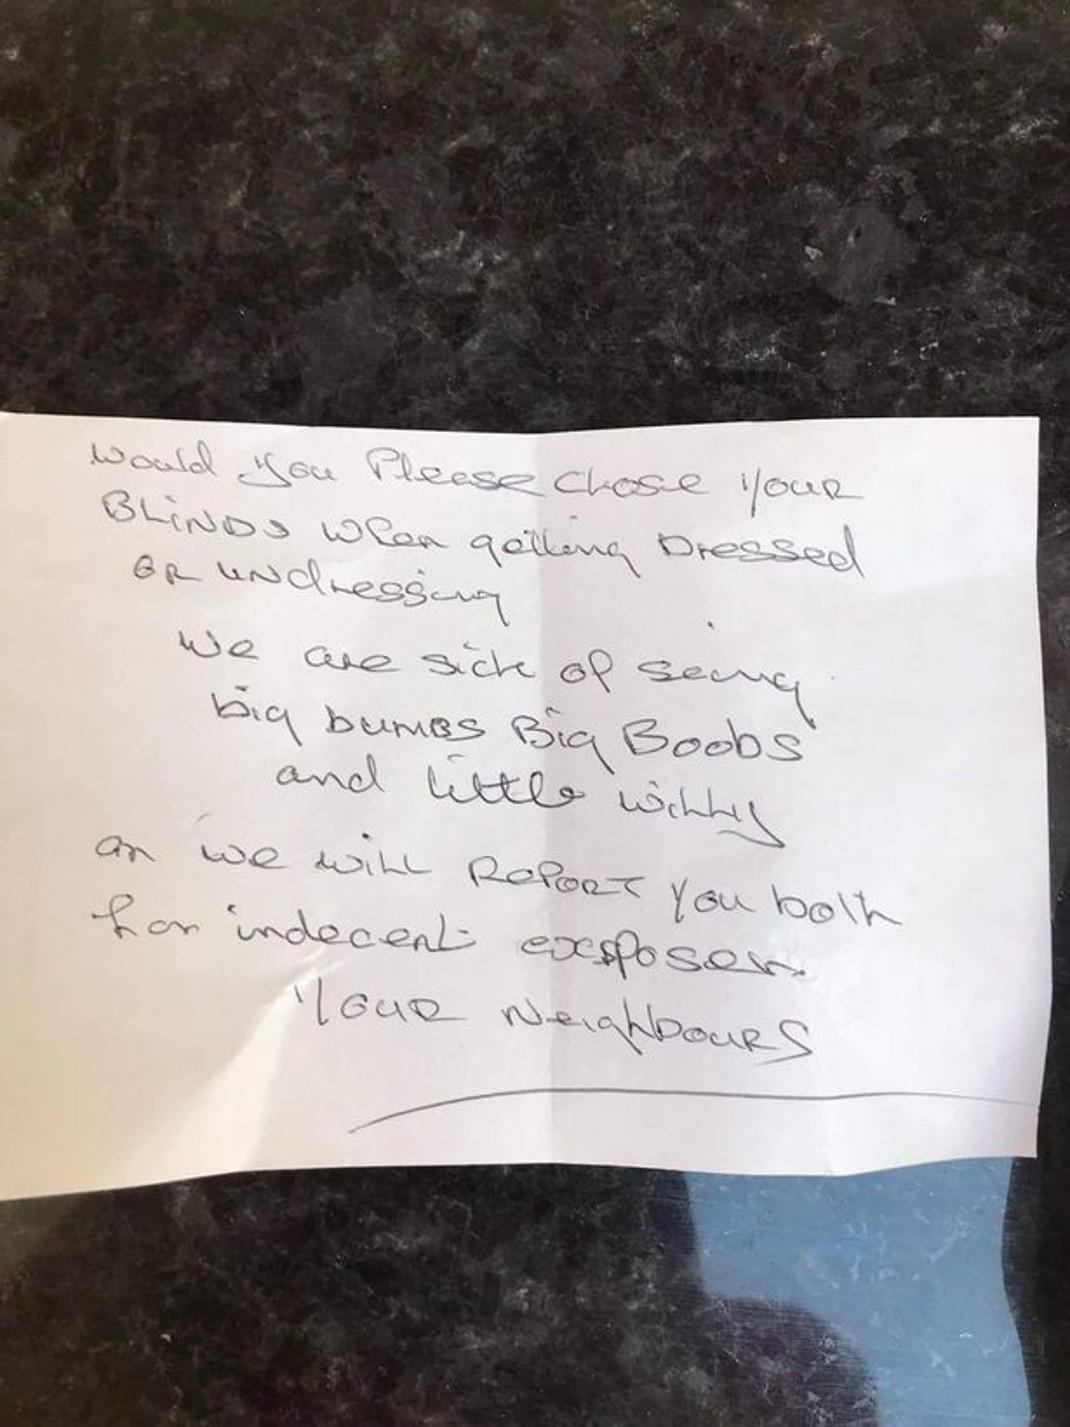 would you Please close your
BLiNDs when getting Dressed
OR undressing
we are sick of seing
big bumbs Big Boobs
and little willy
or we will RePoRT you both
for indecent exsposer.
YouR NeighbouRS